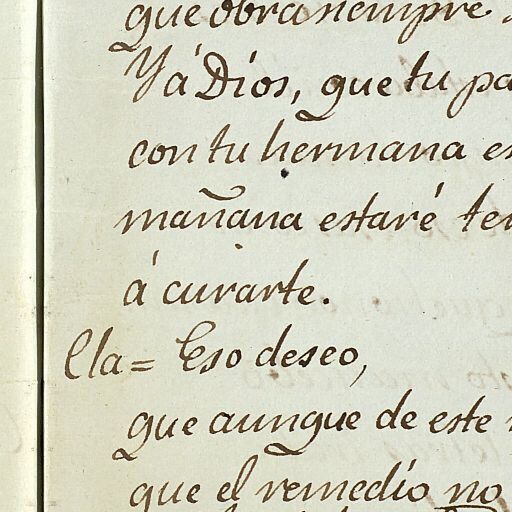 que obra siempre
Yá Dios, que tu pa
con tu hermana es
mañana estaré tem
á curarte.
Cla= Eso deseo,
que aunque de este
que el remedio no